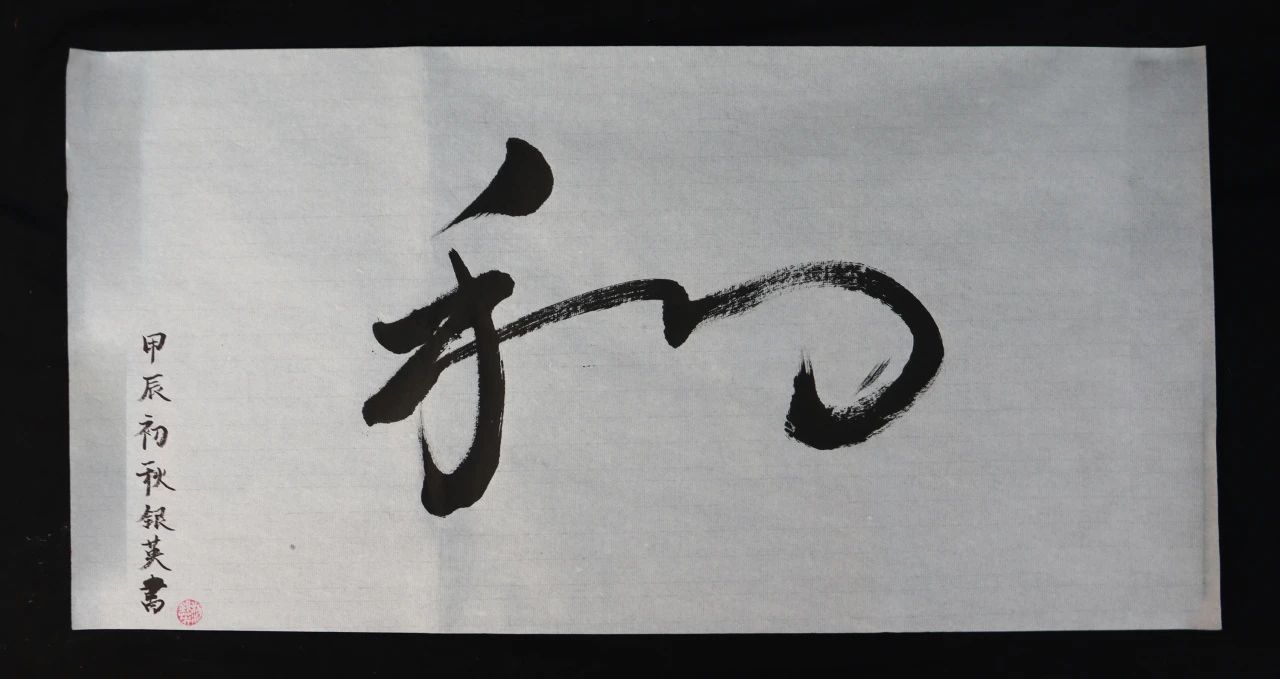 和
甲辰初秋银英書